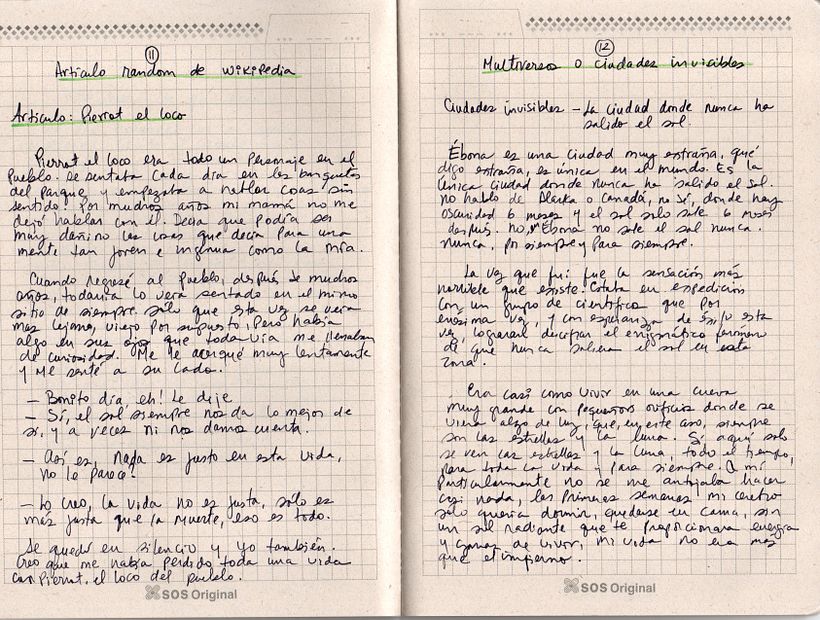 11
Articulo random de wikipedia
Articulo: Pierrot el loco
Pierrot el loco era todo un personaje en el
pueblo. Se sentaba cada día en las banquetas
del parque, y empezaba a hablar cosas sin
sentido. Por muchos años mi mamá no me
dejó hablar con él. Decía que podía ser
muy dañino las cosas que decía para una
mente tan joven e ingenua como la mía.
Cuando regresé al pueblo, después de muchos
años, todavía lo veía sentado en el mismo
sitio de siempre, sólo que esta vez se veía
más lejano, viejo por supuesto, pero había
algo en sus ojos que todavía me llenaban
de curiosidad. Me le acerqué muy lentamente
y me senté a su lado.
– Bonito día, eh! Le dije
– Sí, el sol siempre nos da lo mejor de
sí, y a veces ni nos damos cuenta.
– Así es, nada es justo en esta vida,
no le parece?
– Lo creo, la vida no es justa, sólo es
más justa que la muerte, eso es todo.
Se quedó en silencio y yo también.
Creo que me había perdido toda una vida
con Pierrot, el loco del pueblo.
SOS Original
12
Multiversos o ciudades invisibles
Ciudades invisibles – La ciudad donde nunca ha
salido el sol.
Ébona es una ciudad muy extraña, qué
digo extraña, es única en el mundo. Es la
única ciudad donde nunca ha salido el sol.
No hablo de Alaska o Canadá, no sé, donde hay
oscuridad 6 meses y el sol solo sale 6 meses
después. No, Ébona no sale el sol nunca.
Nunca, por siempre y para siempre.
La vez que fui fue la sensación más
horrible que existe. Estaba en expedición
con un grupo de científicos que por
enésima vez, y con esperanza de éxito esta
vez, lograran descifrar el enigmático fenómeno
de que nunca saliera el sol en esta
zona.
Era casi como vivir en una cueva
muy grande con pequeños orificios donde se
veía algo de luz, que, en este caso, siempre
son las estrellas y la luna. Si aquí solo
se ven las estrellas y la luna, todo el tiempo,
para toda la vida y para siempre. A mí
particularmente no se me antojaba hacer
casi nada, las primeras semanas mi cerebro
sólo quería dormir, quedarse en cama, sin
un sol radiante que te proporcionara energía
y ganas de vivir, mi vida no era más
que el infierno.
SOS Original